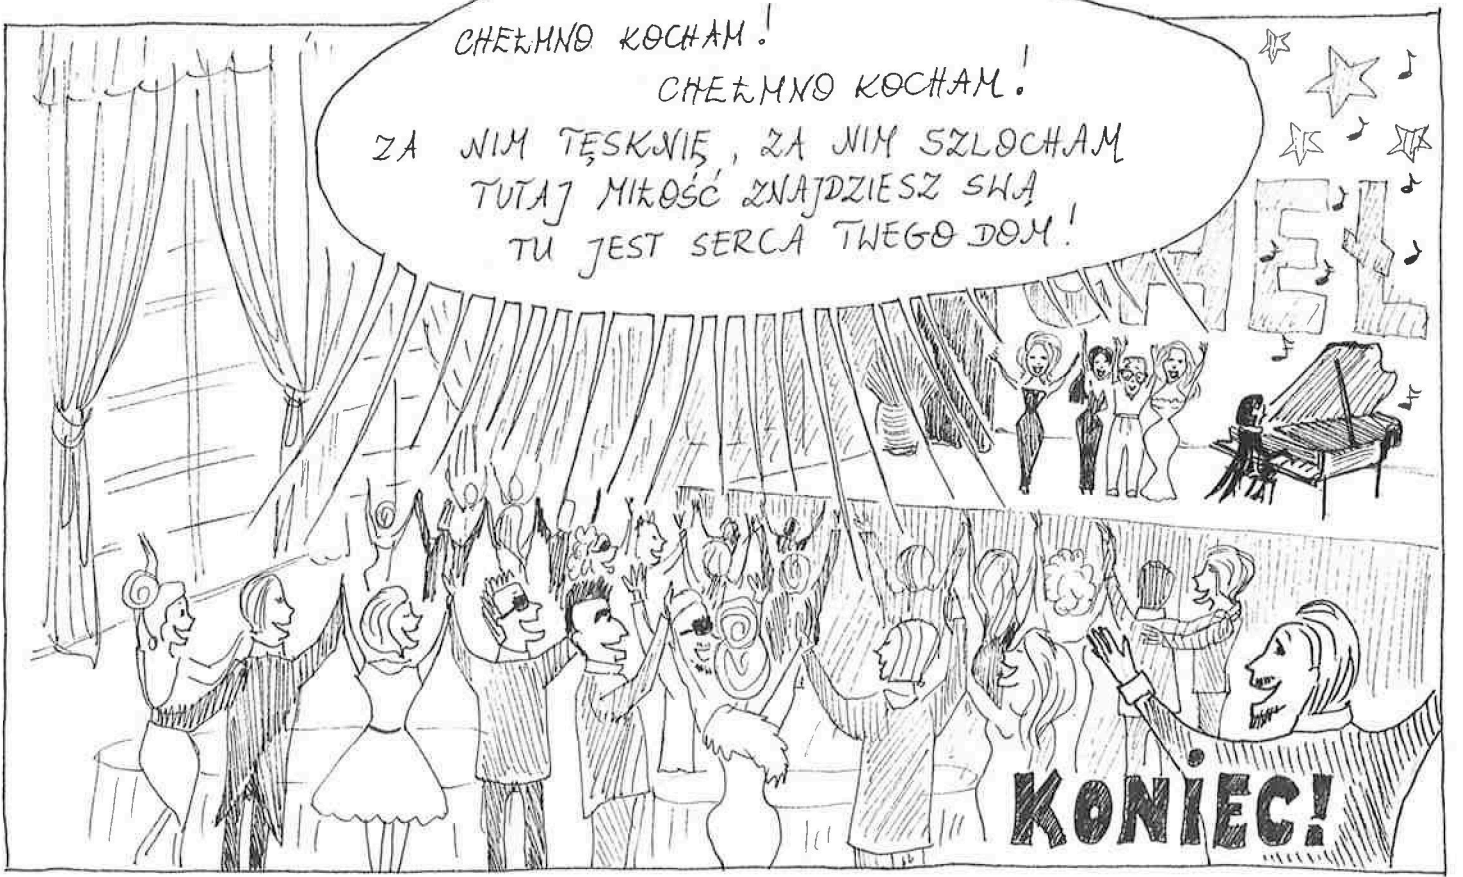 CHEŁMNO KOCHAM!
CHEŁMNO KOCHAM!
ZA NIM TĘSKNIĘ, ZA NIM SZLOCHAM
TUTAJ MIŁOŚĆ ZNAJDZIESZ SWĄ
TU JEST SERCA TWEGO DOM!
CHEŁ
KONIEC!